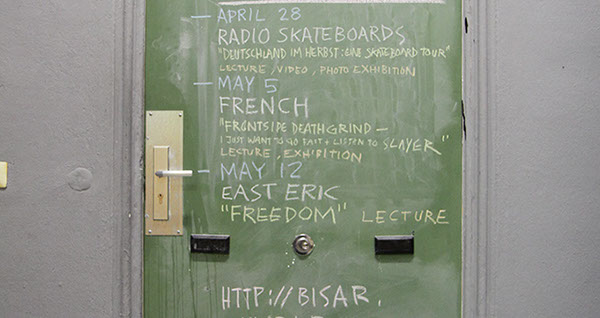 — APRIL 28
RADIO SKATEBOARDS
"DEUTSCHLAND IM HERBST: EINE SKATEBOARD TOUR"
LECTURE, VIDEO, PHOTO EXHIBITION
— MAY 5
FRENCH
"FRONTSIDE DEATHGRIND —
I JUST WANT TO GO FAST + LISTEN TO SLAYER"
LECTURE, EXHIBITION
— MAY 12
EAST ERIC
"FREEDOM" LECTURE
HTTP://BISAR.